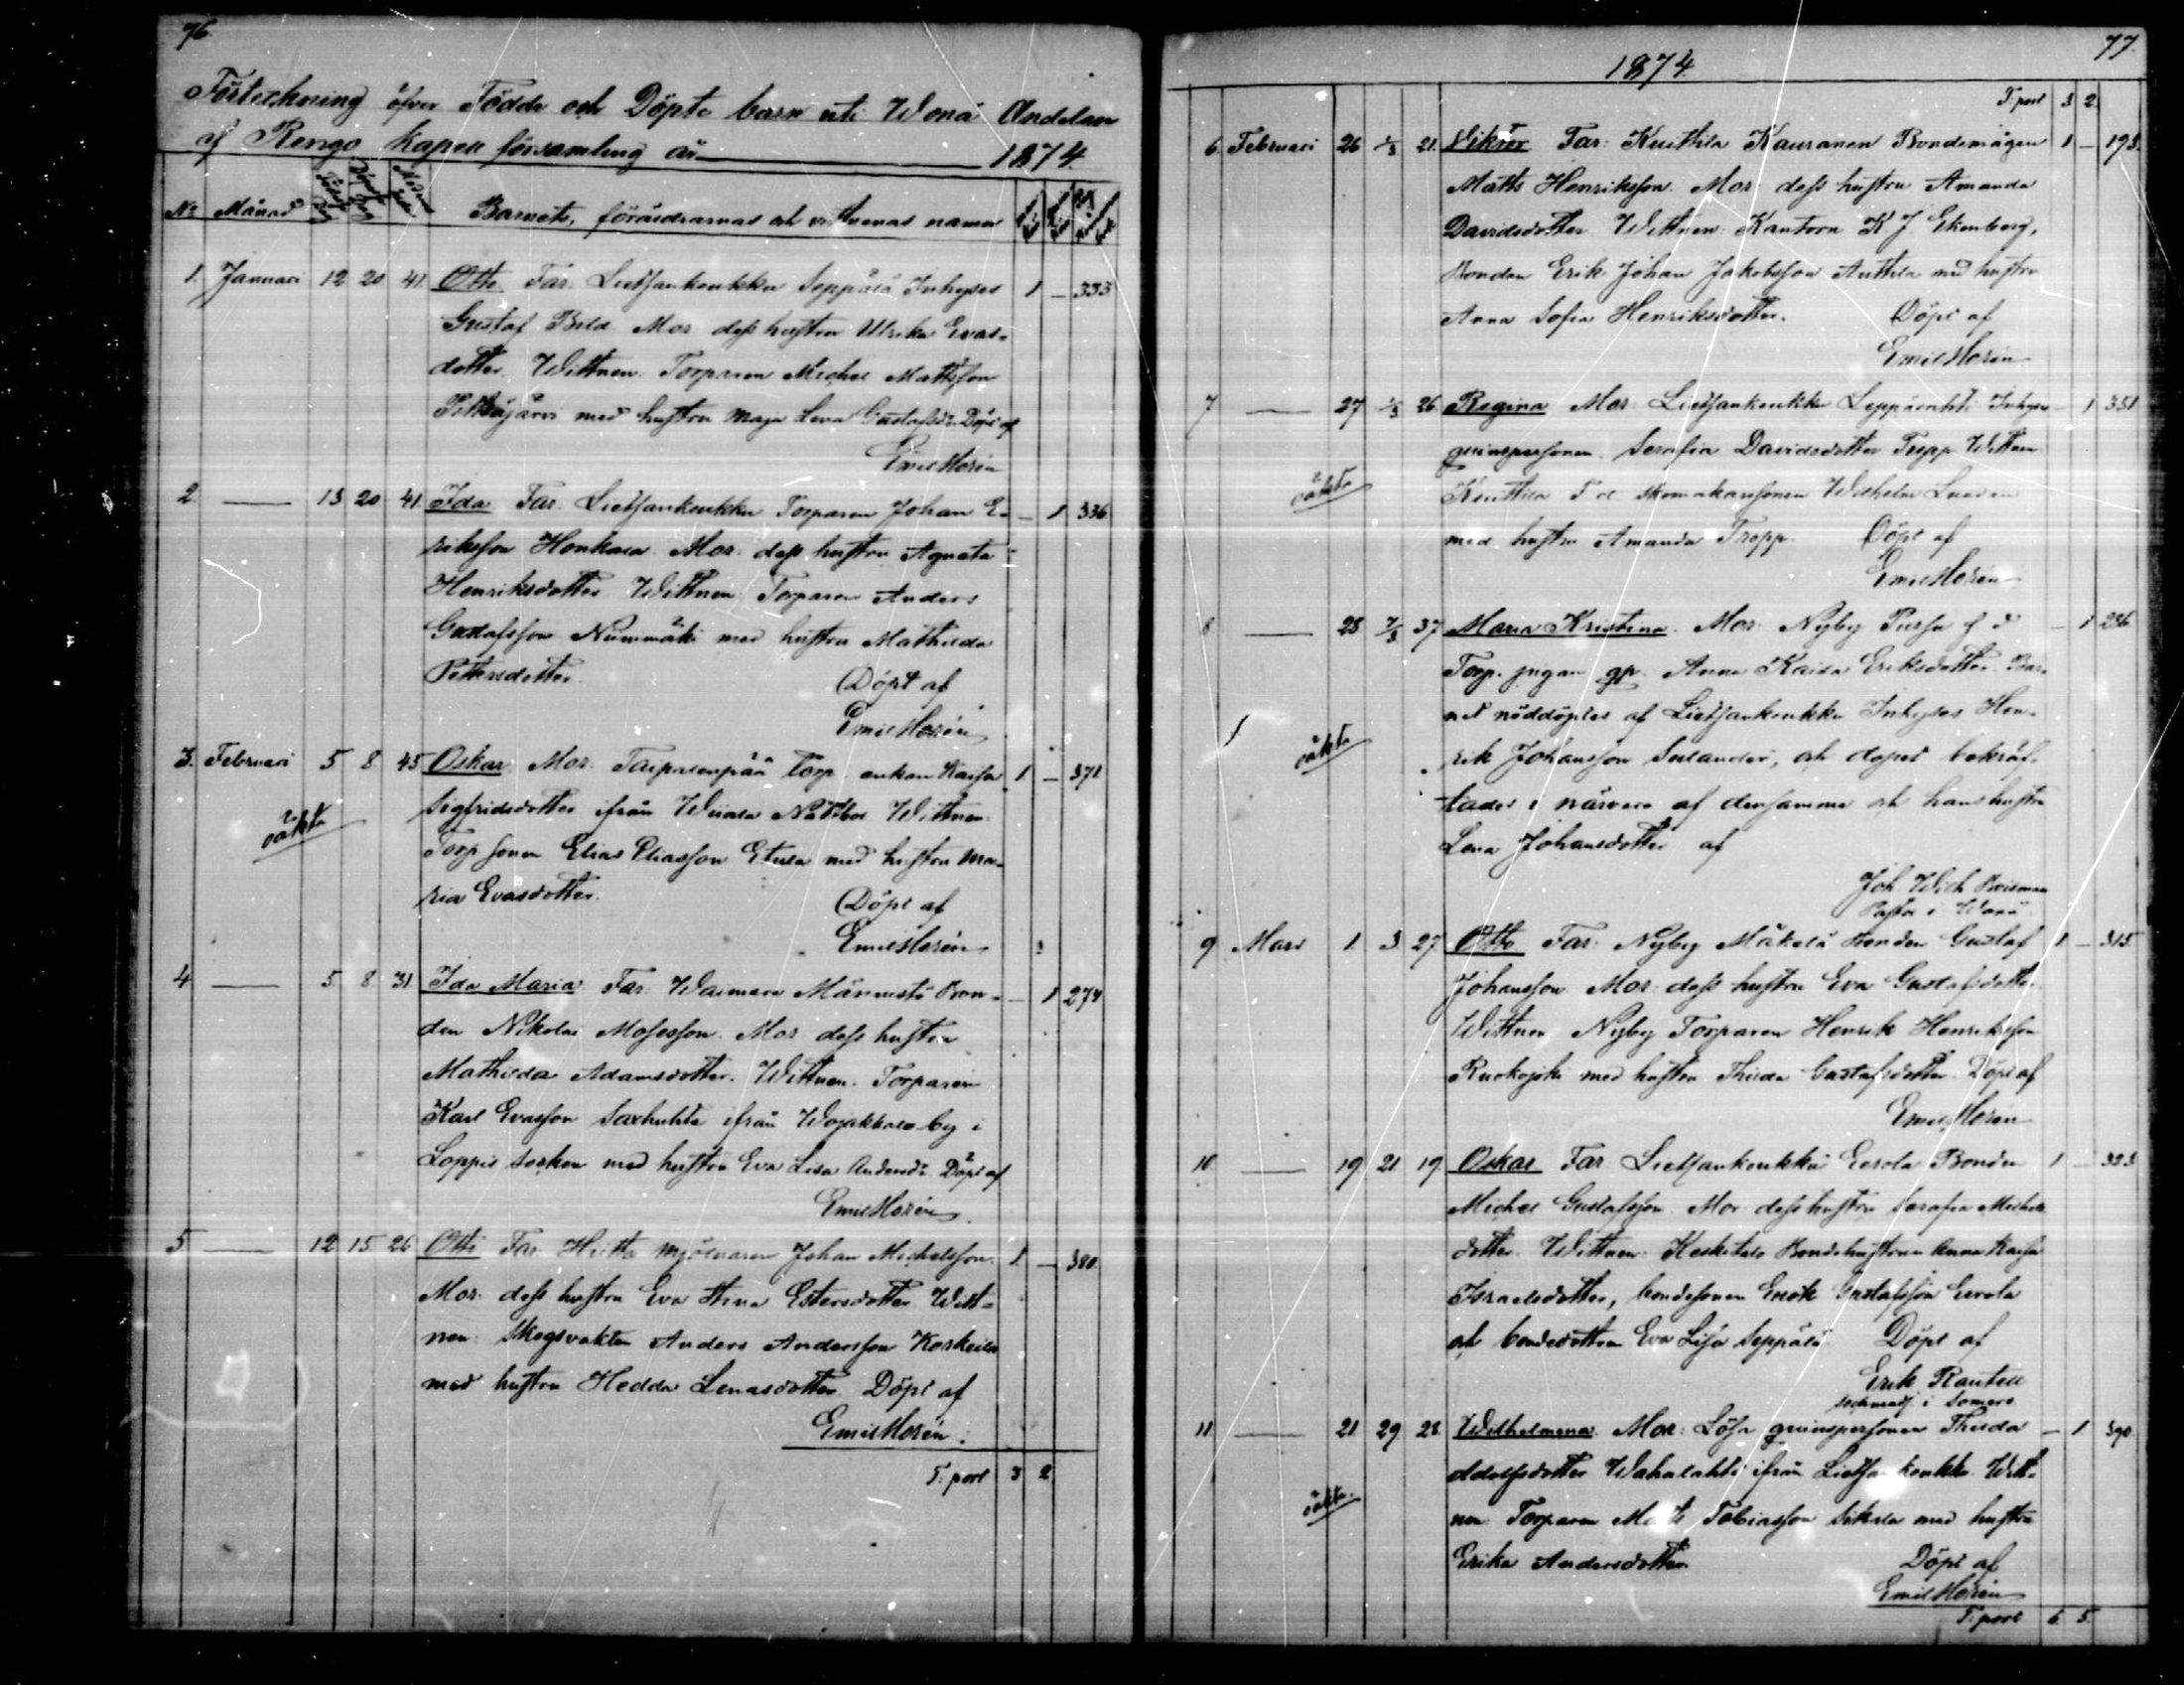 76
Förteckning öfver Födde och Döpte barn uti Wånå Andelen
af Rengo kapell församling år 1874.
No Månad Barnets, föräldrarnas och vittnenas namn
1. Januari 12 20 41 Otto Far. Lietsankoukku Seppälä Inhyses 1 — 333
Gustaf Bild. Mor dess hustru Ulrika Evas-
dotter. Wittnen Torparen Michel Mattsson
Pitkäjärvi med hustru Maja Lena Gustafsdr Döpt af
Emil Horén
2 — 13 20 41 Ida Far. Lietsankoukku Torparen Johan E- — 1 336
riksson Honkala. Mor. dess hustru Agneta
Henriksdotter Wittnen Torparen Anders
Gustafsson Nummimäki med hustru Mathilda
Pettersdotter. Döpt af
Emil Horén
3. Februari 5 8 45 Oskar Mor. Taipaleenpää Torp enkan Kaisa 1 — 371
Sigfridsdotter ifrån Wiiala Wittnen
oäkta
Torp sonen Elias Eliasson Etula med hustru Ma-
ria Evasdotter. Döpt af
Emil Horén
4 — 5 8 31 Ida Maria Far Waimare Männistö Bon- — 1 274
den Nikolai Mosesson. Mor dess hustru
Mathilda Adamsdotter. Wittnen. Torparen
Karl Evasson Saxhuhta ifrån Wojakkala by i
Loppis socken med hustru Eva Lisa Andersdr Döpt af
Emil Horén
5 — 12 15 26 Otto Far Mjölnaren Johan Michelsson. 1 — 380
Mor. dess hustru Eva Stina Estersdotter Witt-
nen Skogsvakten Anders Andersson Koskela
med hustru Hedda Lenasdotter Döpt af
Emil Horén.
T. port 3 2
77
1874
T. port 3 2.
6. Februari 26 1/3 21. Viktor Far: Kuittila Kauranen Bondemågen 1 — 193.
Matts Henriksson. Mor dess hustru Amanda
Davidsdotter Wittnen Kantorn K J Ekenberg,
Bonden Erik Johan Jakobsson Anttila med hustru
Anna Sofia Henriksdotter. Döpt af
Emil Horén
7 — 27 1/3 26 Regina Mor Lietsankoukku Leppälahti Inhyses — 1 351
qvinspersonen Serafia Davidsdotter Tropp Wittnen
oäkta
Kuittila skomakaresonen Wilhelm
med hustru Amanda Tropp. Döpt af
Emil Horén
8 — 28 7/3 37 Maria Kristina. Mor Nyby f d — 1 286
Torp. pigan qp. Anna Kaisa Eriksdotter. Bar-
net nöddöptes af Lietsankoukku Inhyses Hen-
oäkta
rik Johansson Sulander, och dopet bekräf-
tades i närvaro af densamme och hans hustru
Lena Johansdotter af
Joh Wilh
Pastor i Wånå
9 Mars 1. 3 27 Otto Far: Nyby Mäkelä Bonden Gustaf 1 — 315
Johansson Mor: dess hustru Eva Gustafsdotter
Wittnen Nyby Torparen Henrik Henriksson
Ruokojoki med hustru Thilda Gustafsdotter Döpt af
Emil Horén
10 — 19 21 19 Oskar Far Lietsankoukku Eerola Bonden 1 — 323
Michel Gustafsson. Mor dess hustru Serafia Michels
dotter. Wittnen: Keskitalo Bondehustrun Anna Kaisa
Israelsdotter, bondesonen Enok Gustafsson Eerola
och bondedottren Eva Lisa Seppälä Döpt af
Erik Rautell
i Somero
11 — 21 29 28 Wilhelmina Mor: Lösa qvinspersonen Thilda — 1 390
Adolfsdotter Wahalahti ifrån Lietsankoukku Witt-
oäkta.
nen Torparen Matts Tobiasson Sikala med hustru
Erika Andersdotter Döpt af
Emil Horén
T. port 6. 5.